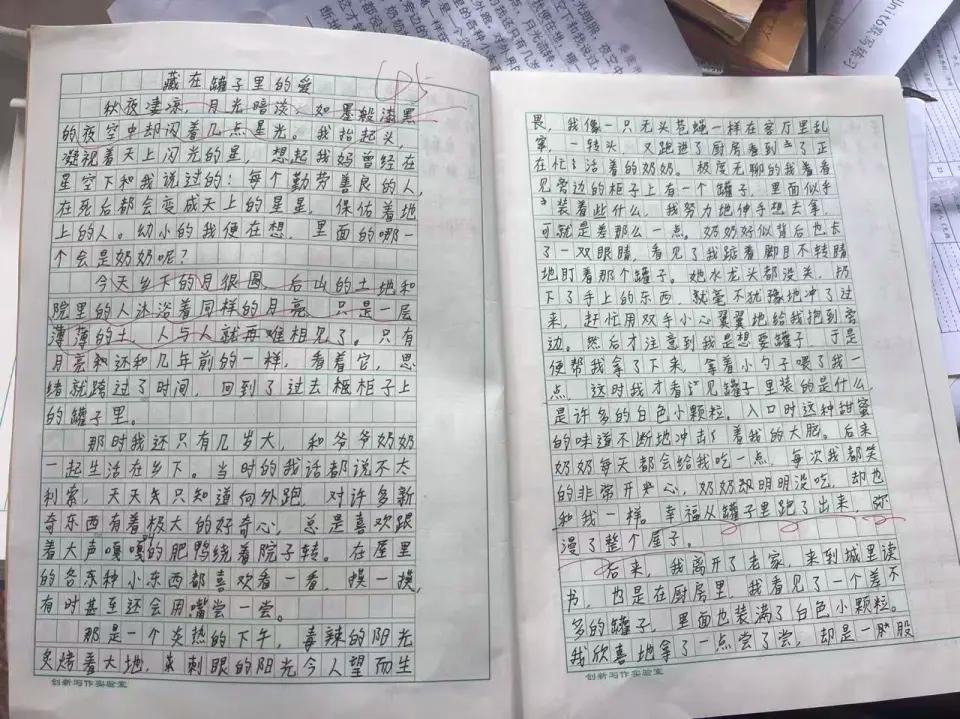 藏在罐子里的爱
秋夜凄凉，月光暗淡，如墨般漆黑
的夜空中却闪着几点星光。我抬起头，
凝视着天上闪光的星，想起我妈曾经在
星空下和我说过的：每个勤劳善良的人，
在死后都会变成天上的星星，保佑着地
上的人。幼小的我便在想，里面的哪一
个会是奶奶呢？
今天乡下的月很圆，后山的土地和
院里的人沐浴着同样的月亮，只是一层
薄薄的土，人与人就再难相见了。只有
月亮还和几年前的一样，看着它，思
绪就跨过了时间，回到了过去柜子上
的罐子里。
那时我还只有几岁大，和爷爷奶奶
一起生活在乡下。当时的我话都说不太
利索，天天只知道向外跑，对许多新
奇东西有着极大的好奇心，总是喜欢跟
着大声嘎嘎的肥鸭绕着院子转。在屋里
的各种小东西都喜欢看一看，摸一摸，
有时甚至还会用嘴尝一尝。
那是一个炎热的下午，毒辣的阳光
炙烤着大地，刺眼的阳光令人望而生
创新写作实验室
畏，我像一只无头苍蝇一样在客厅里乱
窜，一转头，又跑进了厨房看到了正
在忙活着的奶奶。极度无聊的我看着看
见旁边的柜子上有一个罐子，里面似乎
装着些什么，我努力地伸手想去拿，
可就是差那么一点。奶奶好似背后也长
了一双眼睛，看见了我踮着脚目不转睛
地盯着那个罐子。她水龙头都没关，扔
下了手上的东西，就毫不犹豫地冲了过
来，赶忙用双手小心翼翼地给我抱到旁
边。然后才注意到我是想要罐子，于是
便帮我拿了下来，拿着小勺子喂了我一
点，这时我才看见罐子里装的是什么，
是许多的白色小颗粒。入口时这种甜蜜
的味道不断地冲击着我的大脑。后来
奶奶每天都会给我吃一点，每次我都笑
的非常开心，奶奶却明明没吃，却也
和我一样。幸福从罐子里跑了出来，弥
漫了整个屋子。
后来，我离开了老家，来到城里读
书，也是在厨房里，我看见了一个差不
多的罐子，里面也装满了白色小颗粒。
我欣喜地拿了一点尝了尝，却是一股
创新写作实验室